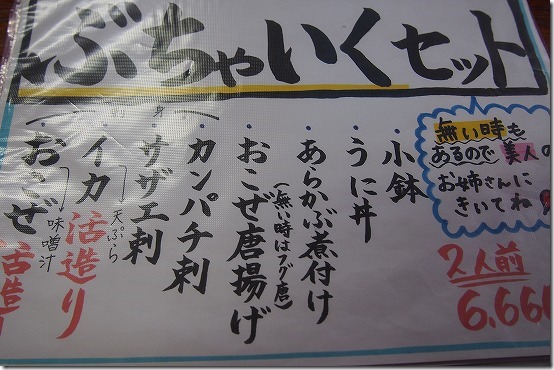 ぶちゃいくセット
無い時も
あるので美人の
お姉さんに
きいてね
2人前
6,66
・小鉢
・うに丼
・あらかぶ煮付け
・おこぜ唐揚げ
(無い時はフグ唐)
・カンパチ刺
・サザエ刺
・イカ活造り
天ぷら
・おこぜ活造
味噌汁